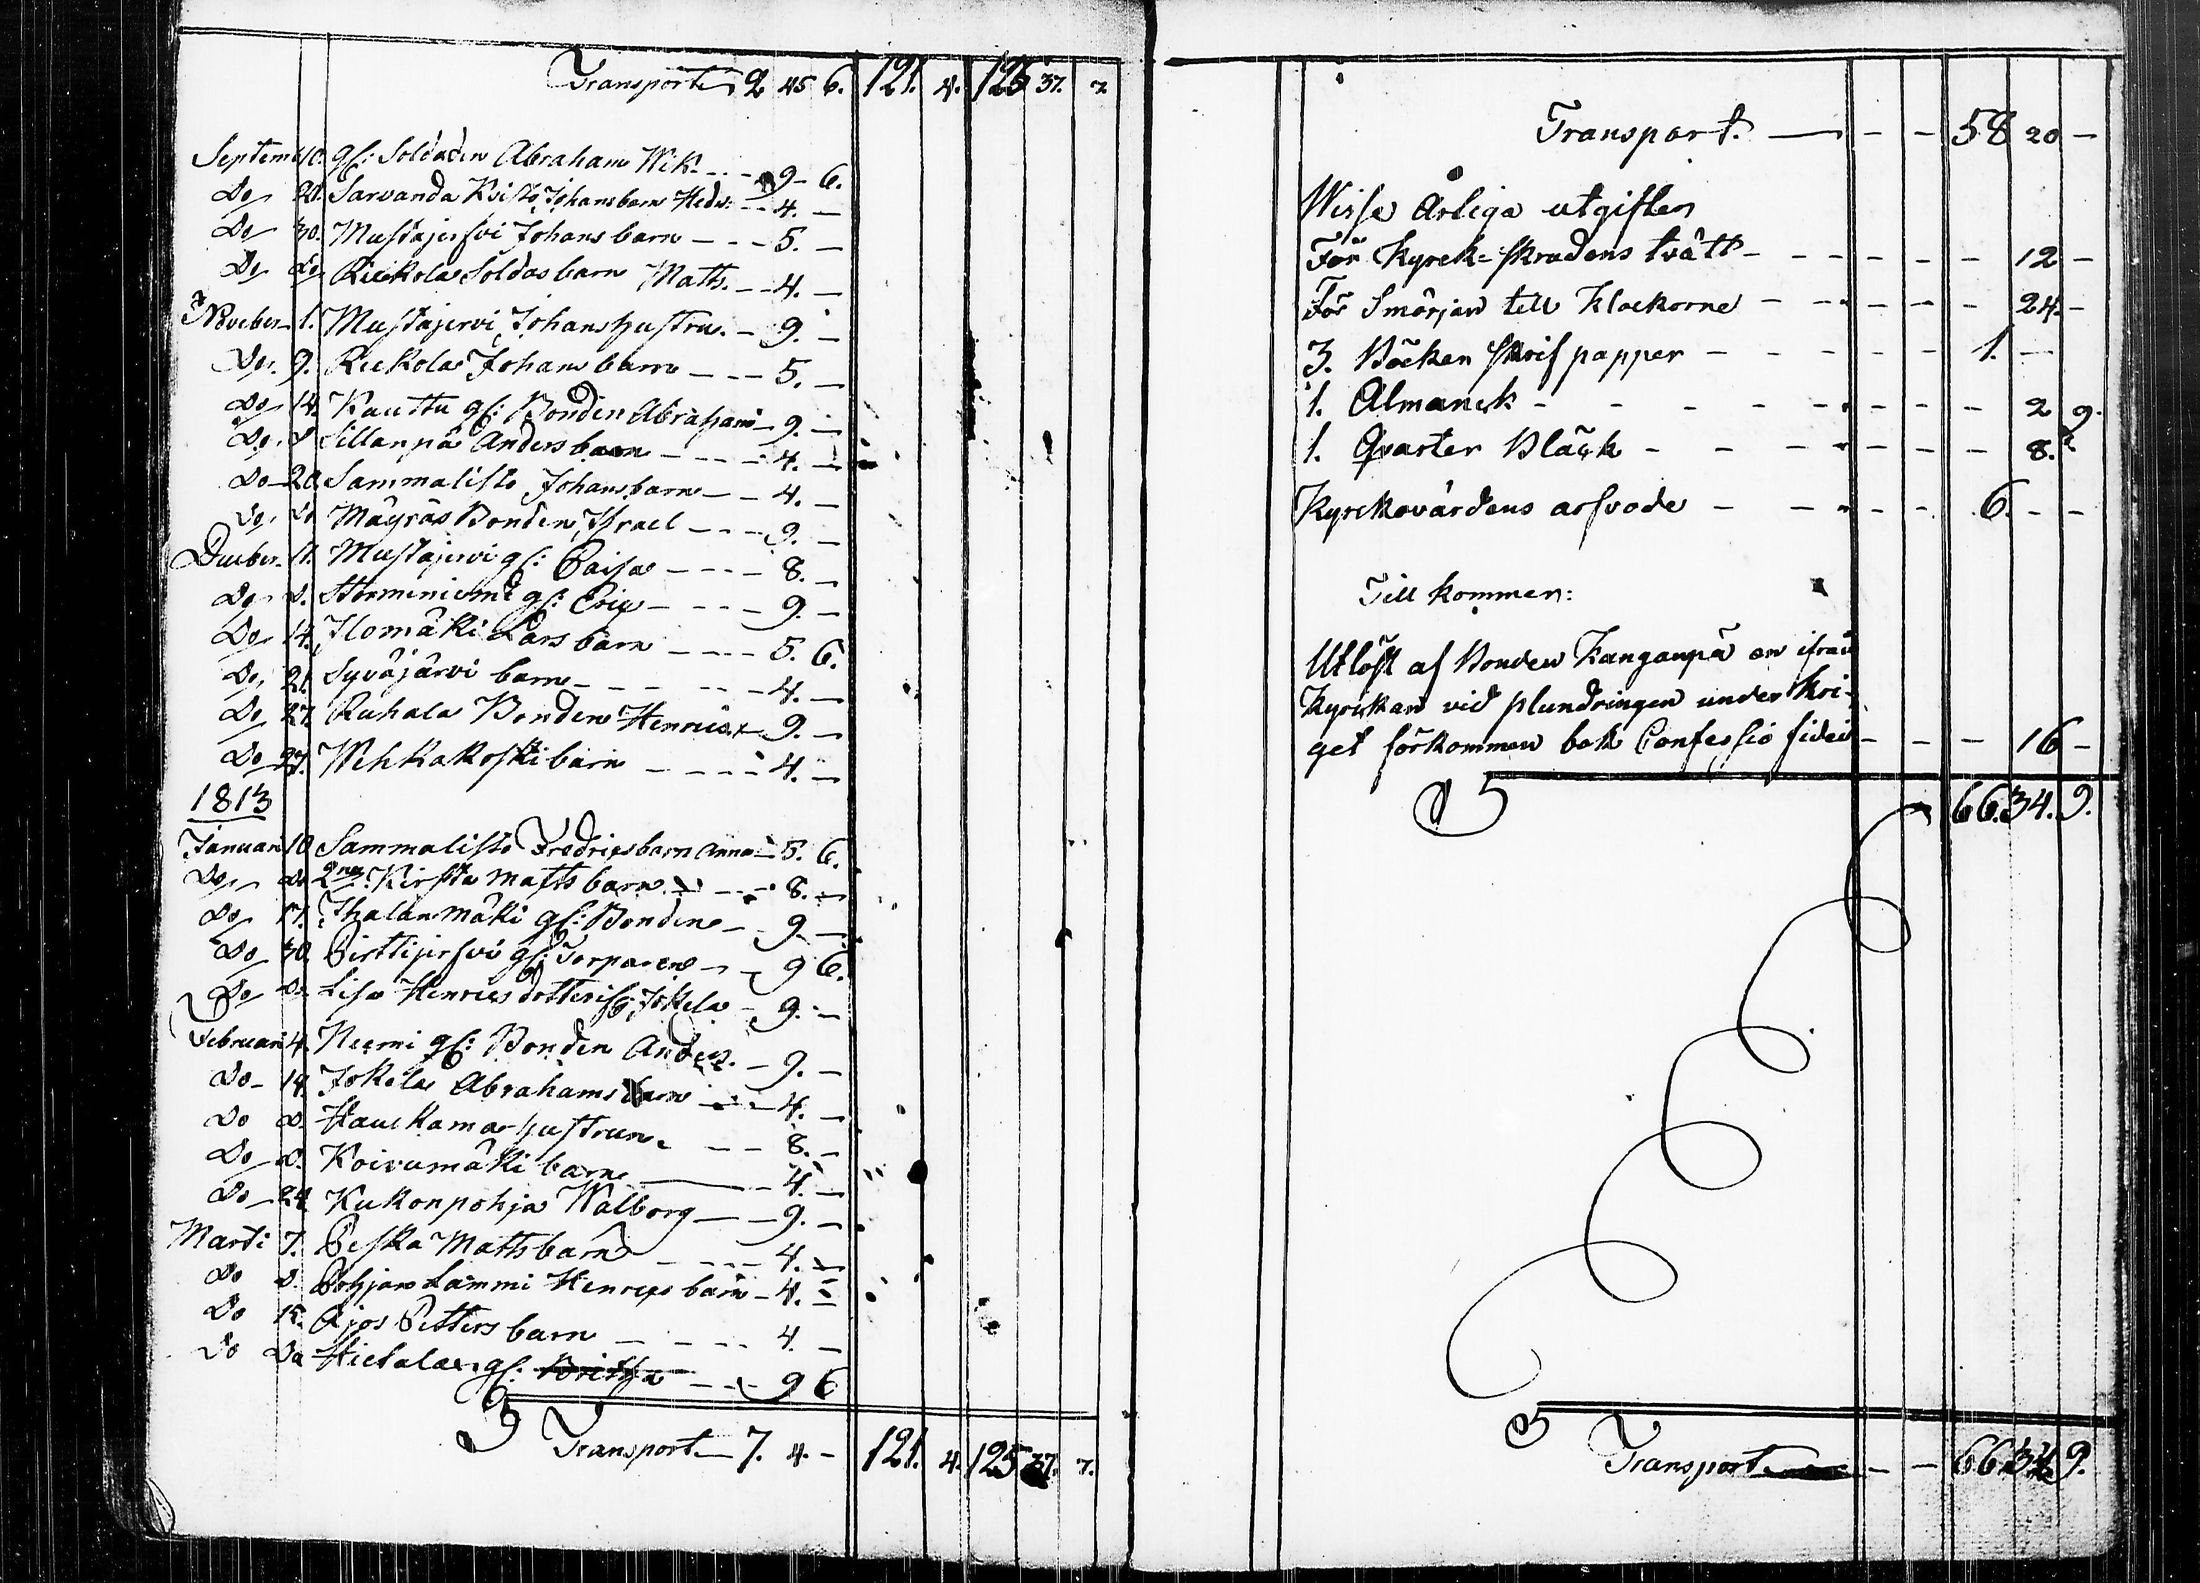 Transport 2 45 6. 121. 4. 125 37. 7
Septem 10. gl: Soldaden Abraham Wik - - - 9 - 6.
Do 20. Sarvanda Kvisto Johansbarn Hedv: - - 4. -
Do 30. Mustajerfvi Johans barn - - - 5. -
Do Do Rickola Soldas barn Matts. - - 4. -
Noveber 1. Mustajervi Johans hustru. - 9. -
Do. 9. Rickola Johans barn - - - 5. -
Do 14. Kauttu gl: Bonden Abraham - 9. -
Do. D Sillanpä Anders barn - - - - 4. -
Do - 20. Sammalisto Johans barn - - 4. -
Do. Do Mäyräs Bonden Israel - - - - 9. -
Deceber. 11. Mustajervi gl: Caisa - - - - 8. -
Do D. gl: Eric - - - - 9. -
Do 14. Ilomäki Lars barn - - - - 5. 6.
Do 21. Syväjärvi barn - - - - - - 4. -
Do 27. Ruhala Bonden Henric - 9. -
Do 27. Wehkakoski barn - - - - - 4. -
1813
Januari 10 Sammalisto Fredrics barn Anna - 5. 6.
Do. Do 2ne Kirsta Matts barn - - - 8. -
Do 17. Ihalanmäki gl: Bonden - - 9. -
Do 30. Pirttijerfvi gl: Torparen - - 9 6.
Do D. Lisa Henrics dotter Jokela - 9. -
Februari 4. Neemi gl: Bonden Anders. - 9. -
Do - 14. Jokela Abrahams barn - - - 4. -
Do D. Haukama hustrun. - - 8. -
Do D. Koivumäki barn - 4. -
Do - 24. Kukonpohja Walborg - - 9. -
Marti 7. Peska Matts barn - - - - 4. -
Do D. Pohjan Lammi Henrics barn - 4. -
Do 15. Ajos Petters barn - - - - 4. -
Do Do Hietala gl: Britha - - - 9 6
Transport - 7. 4. - 121. 4. 125 37. 7.
Transport. - - - 58 20 -
Wisse Årliga utgifter
För Kyrck-skrudens tvätt - - - - - - 12 -
För Smörjan till Klockorne - - - - - - 24. -
3. Böcker skrif papper - - - - - 1. -
1. Almanck - - - - - - - - 2 9.
1. Qvarter Bläck - - - - - - - 8.
Kyrckovärdens arfvode - - - - - 6. - -
Till kommer:
Utlöst af Bonden Kanganpä en ifrån
Kyrckan vid plundringen under kri-
get förkommen bok Confessio fidei - - - 16 -
66. 34. 9.
Transport - - 66. 34. 9.